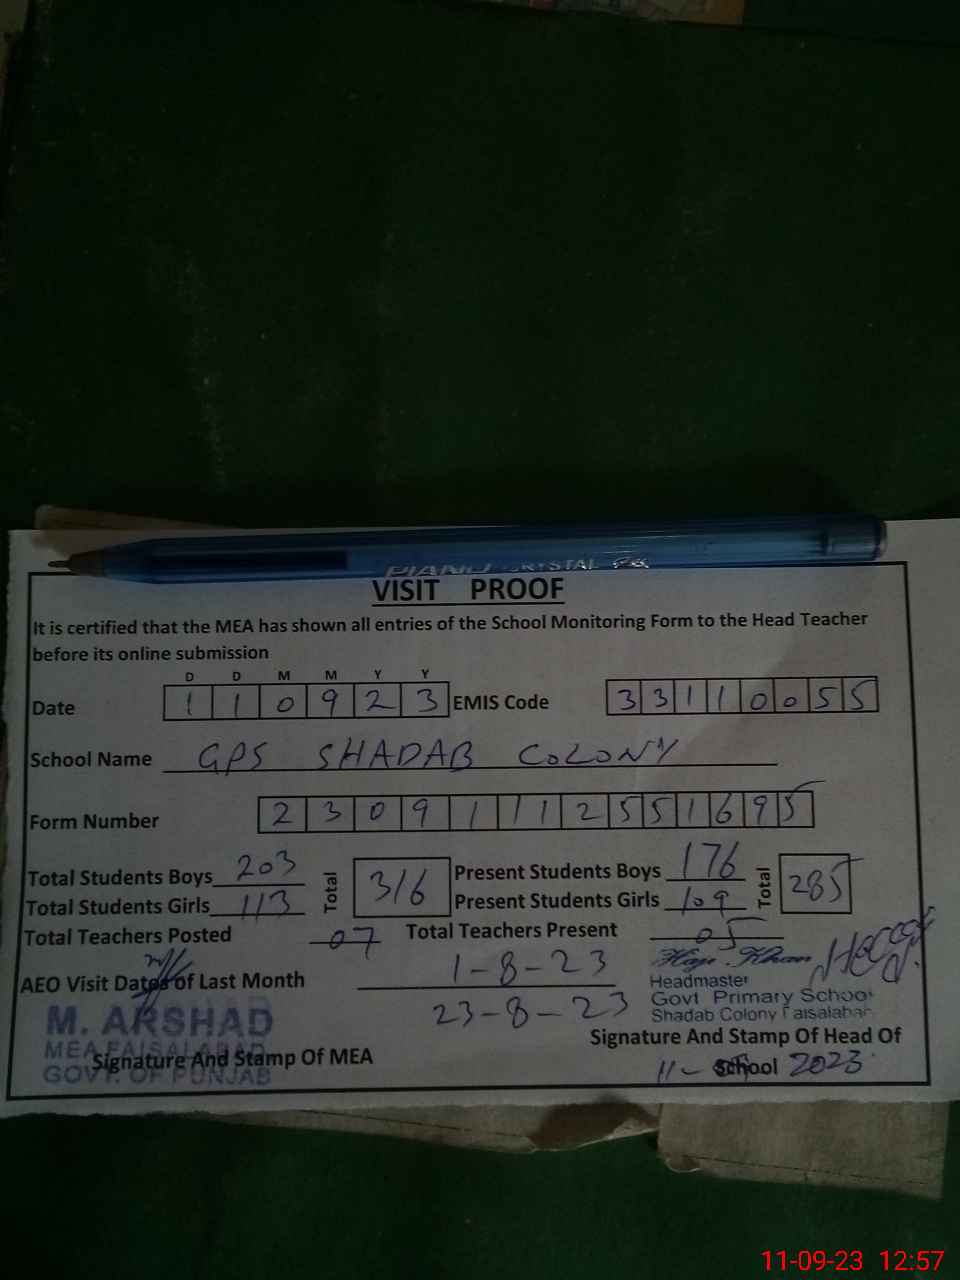 PIANO CRYSTAL
VISIT PROOF
It is certified that the MEA has shown all entries of the School Monitoring Form to the Head Teacher
before its online submission
D D M M Y Y
Date 1 1 0 9 2 3 EMIS Code 3 3 1 1 0 0 5 5
School Name GPS SHADAB COLONY
Form Number 2 3 0 9 1 1 1 2 5 5 1 6 9 5
Total Students Boys 203 Total 316 Present Students Boys 176 Total 285
Total Students Girls 113 Present Students Girls 109
Total Teachers Posted 07 Total Teachers Present 05
AEO Visit Dates of Last Month 1-8-23
23-8-23
Haji Khan
Headmaster
Govt Primary School
Shadab Colony Faisalabad
M. ARSHAD
MEA FAISALABAD
GOVT. OF PUNJAB
Signature And Stamp Of MEA
Signature And Stamp Of Head Of
School
11- 2023
11-09-23 12:57